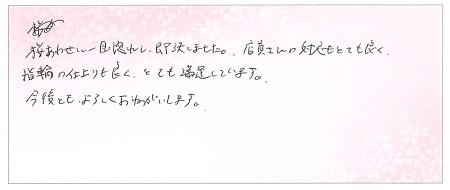 桜あわせに一目惚れし、即決しました。店員さんの対応もとても良く、
指輪の仕上りも良く、とても満足しています。
今後ともよろしくおねがいします。